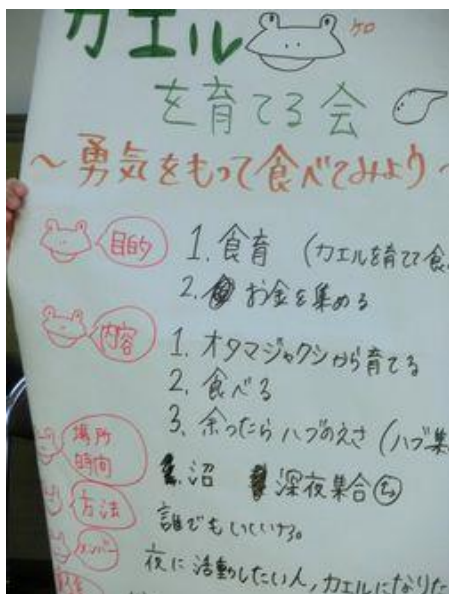 カエル ケロ
を育てる会
〜勇気をもって食べてみよう〜
目的 1. 食育 (カエルを育てて食
2. お金を集める
内容 1. オタマジャクシから育てる
2. 食べる
3. 余ったらハブのえさ (ハブ集
場所 時間 沼 深夜集合
方法 誰でもいいけろ。
メンバー 夜に活動したい人, カエルになりた